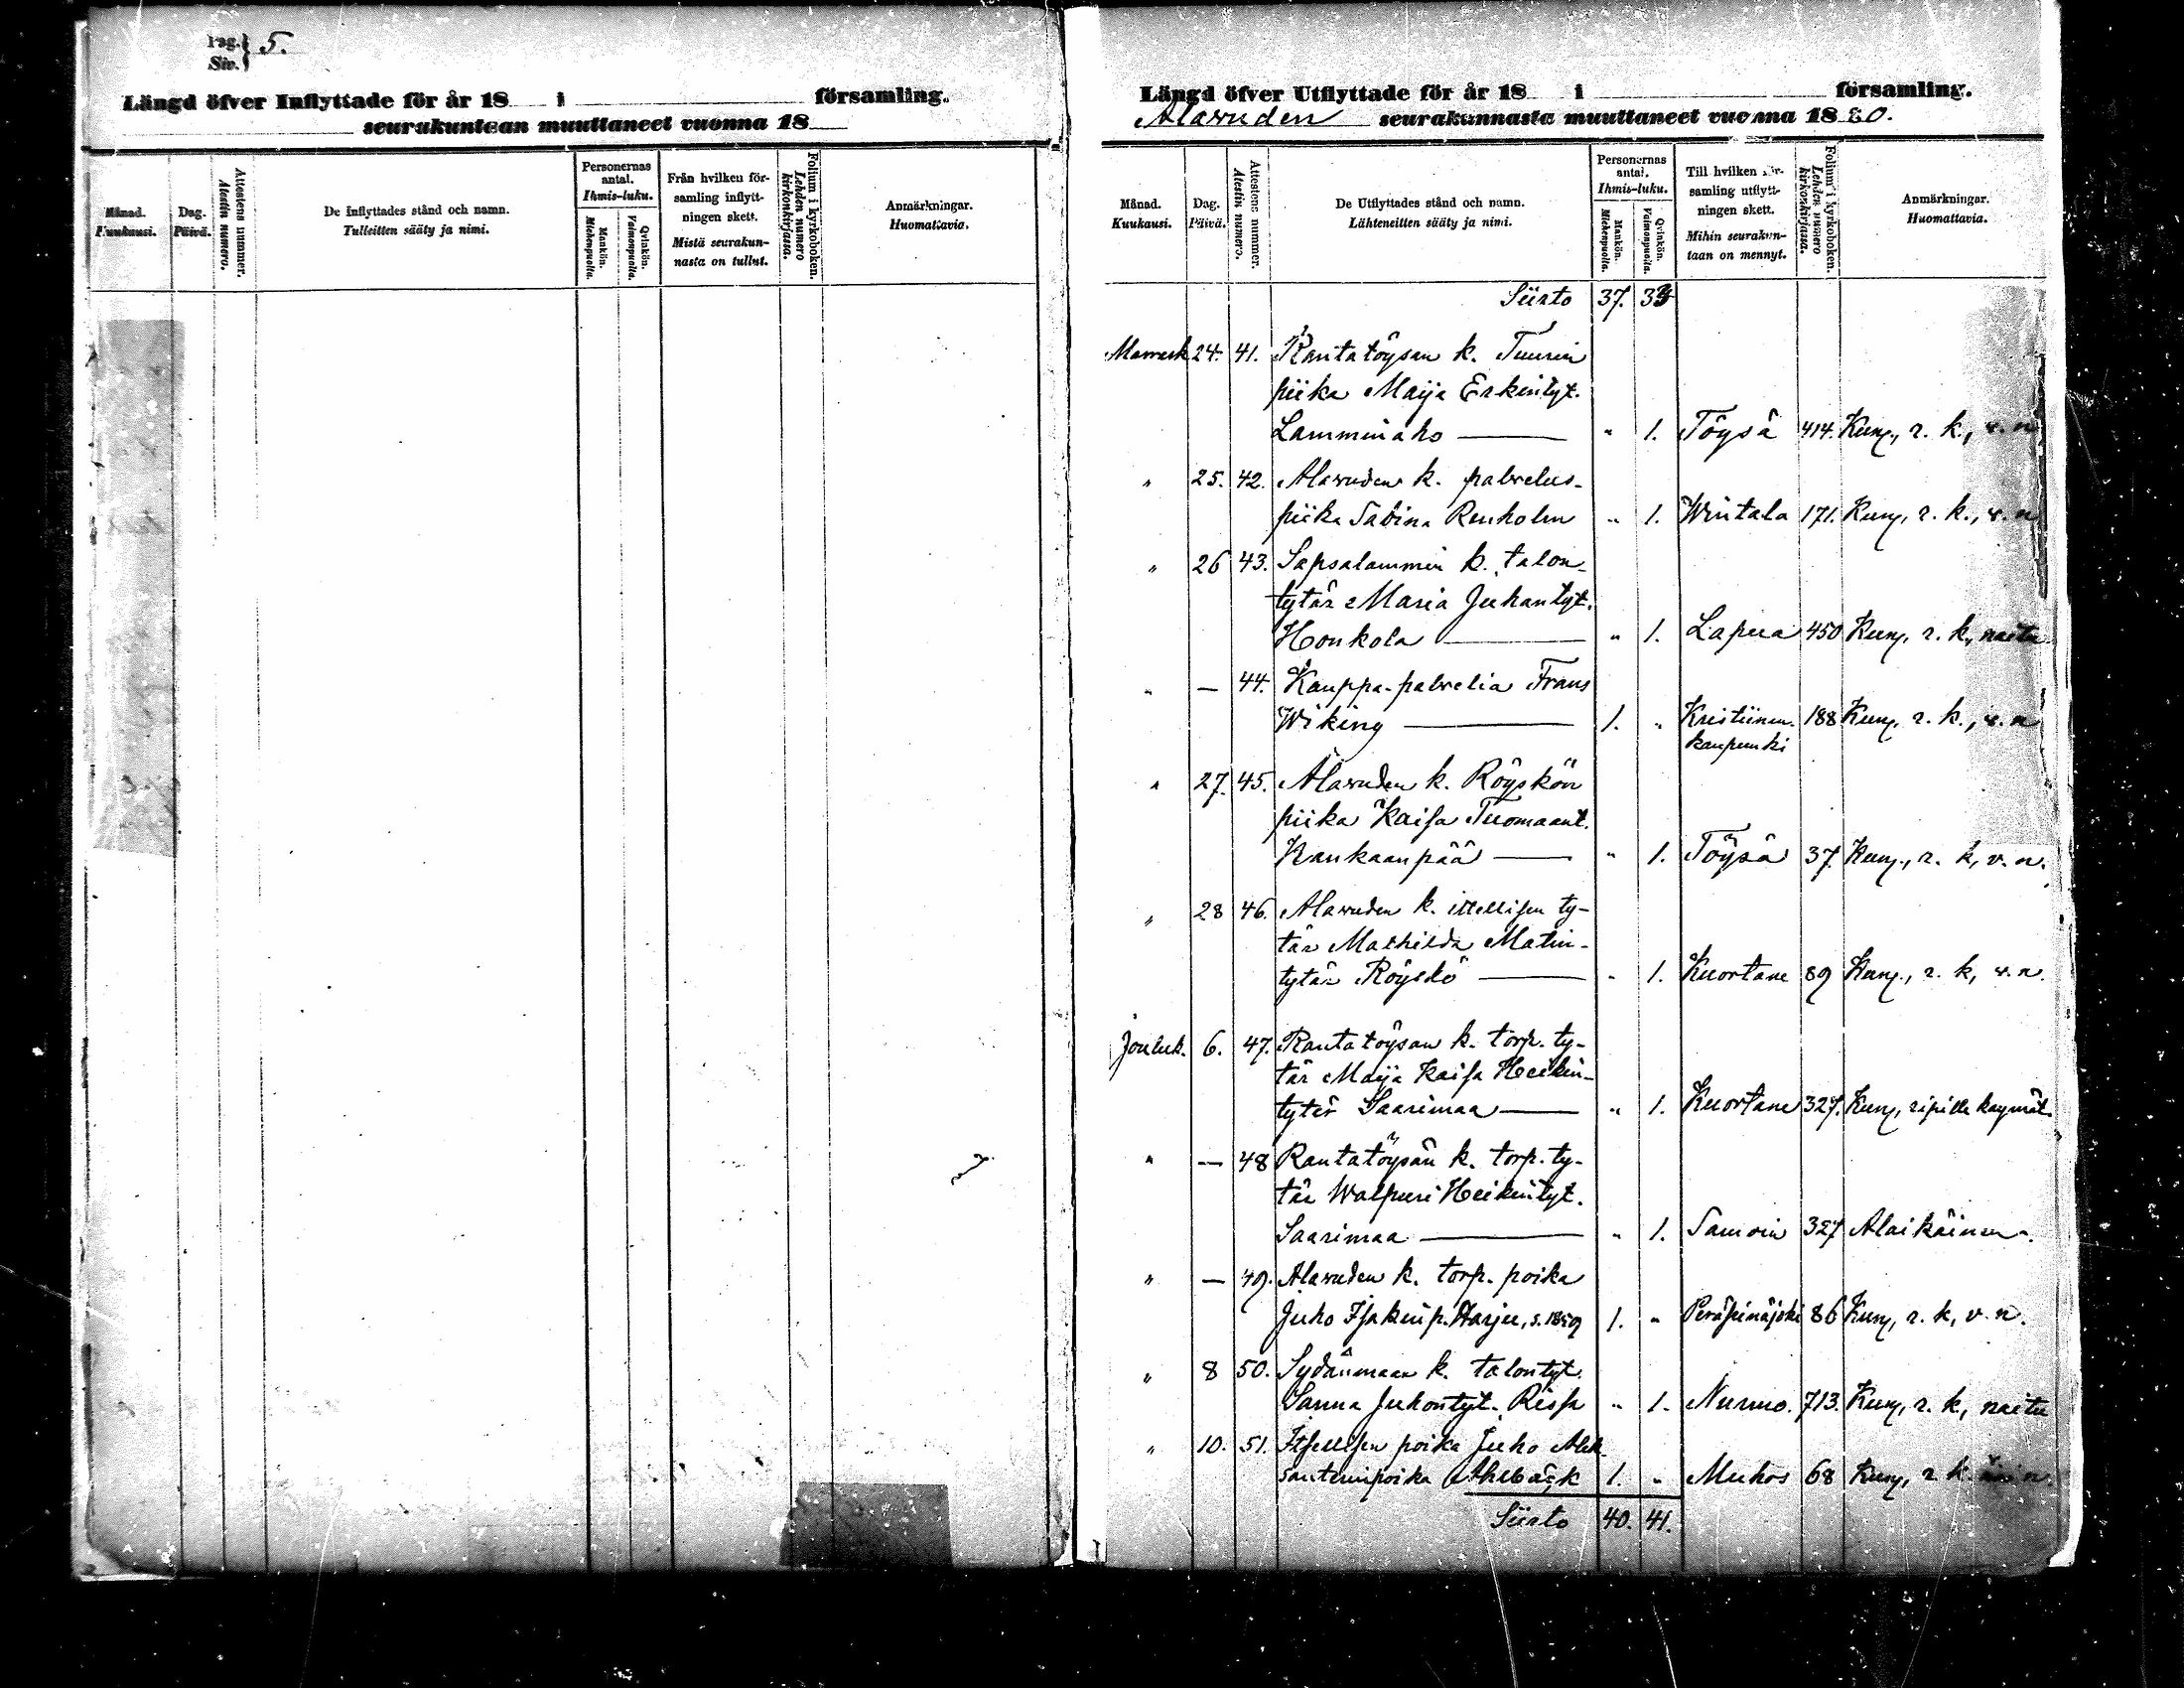 Pag. } 5.
Siv.
Längd öfver Inflyttade för år 18 i församling.
seurakuntaan muuttaneet vuonna 18
Månad. Kuukausi.
Dag. Päivä.
Attestens nummer. Atestin numero.
De Inflyttades stånd och namn.
Tulleitten sääty ja nimi.
Personernas antal. Ihmis-luku.
Mankön. Miehenpuolia.
Qvinkön. Vaimonpuolia.
Från hvilken församling inflyttningen skett.
Mistä seurakunnasta on tullut.
Folium i kyrkoboken. Lehden numero kirkonkirjassa.
Anmärkningar.
Huomattavia.
Längd öfver Utflyttade för år 18 i församling.
Alavuden seurakunnasta muuttaneet vuonna 1880.
Månad. Kuukausi.
Dag. Päivä.
Attestens nummer. Atestin numero.
De Utflyttades stånd och namn.
Lähteneitten sääty ja nimi.
Personernas antal. Ihmis-luku.
Mankön. Miehenpuolia.
Qvinkön. Vaimonpuolia.
Till hvilken församling utflyttningen skett.
Mihin seurakuntaan on mennyt.
Folium i kyrkoboken. Lehden numero kirkonkirjassa.
Anmärkningar.
Huomattavia.
Siirto 37. 33
Marrask 24. 41. Rantatöysän k. Tuurin
piika Maija Erkintyt.
Lamminaho — " 1. Töysä 414. Kuny., r. k., v. n
" 25. 42. Alavuden k. palvelus-
piika Sabina Renholm " 1. Wirtala 171. Kuny, r. k., v. n
" 26 43. Sapsalammin k. talon-
tytär Maria Juhantyt.
Honkola — " 1. Lapua 450 Kuny, r. k, naitu
" — 44. Kauppa-palvelia Frans
Wiking — 1. " Kristiinan- 188 Kuny, r. k., v. n
kaupunki
" 27. 45. Alavuden k. Röyskön
piika Kaisa Tuomaant.
Kankaanpää — " 1. Töysä 37. Kuny., r. k, v. n.
" 28 46. Alavuden k. itsellisen ty-
tär Mathilda Matin-
tytär Röyskö — " 1. Kuortane 89 Kuny., r. k, v. n.
Jouluk. 6. 47. Rantatöysän k. torp. ty-
tär Maija Kaisa Heikin-
tytär Saarimaa — " 1. Kuortane 327. Kuny, ripille käymät.
" — 48 Rantatöysän k. torp. ty-
tär Walpuri Heikintyt.
Saarimaa — " 1. Samoin 327 Alaikäinen.
" — 49. Alavuden k. torp. poika
Juho Isakin p. Harju, s. 1859 1. " Peräseinäjoki 86 Kuny, r. k, v. n.
" 8 50. Sydänmaan k. talontyt.
Sanna Juhontyt. Rissa " 1. Nurmo. 713. Kuny, r. k, naitu
" 10. 51. Itsellisen poika Juho Alek
santerinpoika Ahlbäck 1. " Muhos 68 Kuny, r. k. n.
Siirto 40. 41.